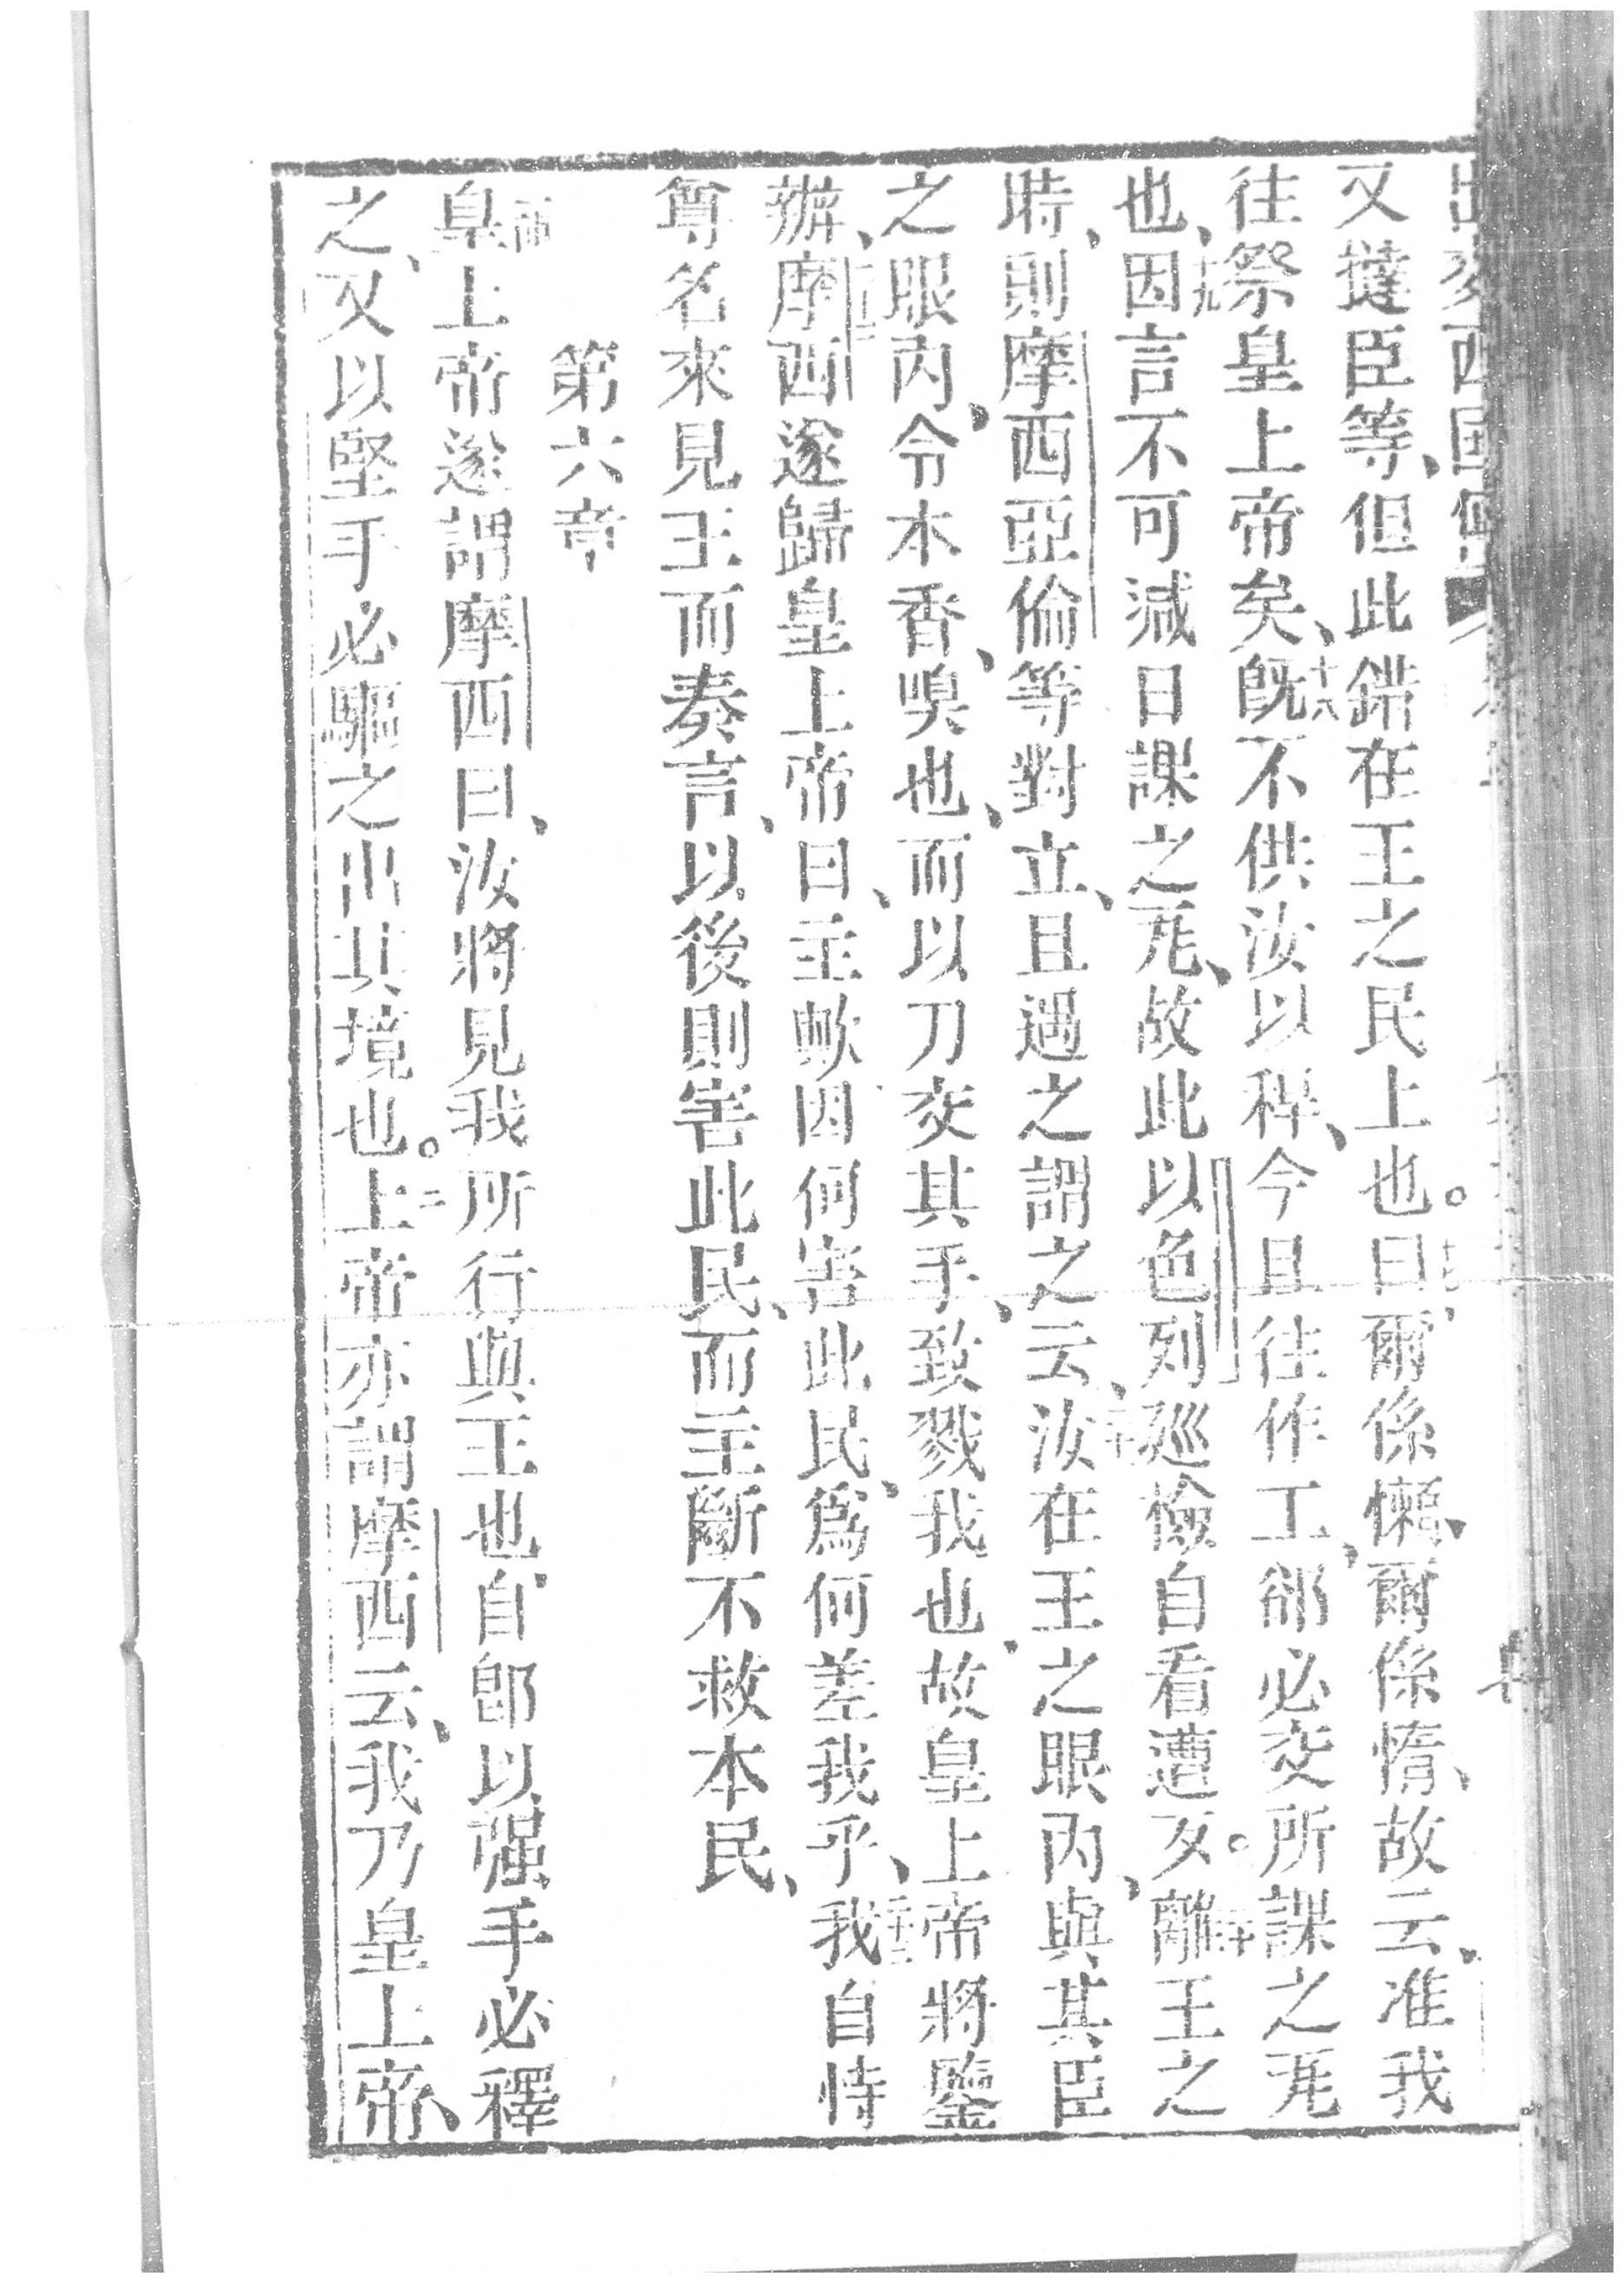 又撻臣等、但此錯在王之民上也。十七曰、爾係懶、爾係惰、故云、准我
往祭皇上帝矣、十八既不供汝以稈、今且往作工、卻必交所課之瓦
也、十九因言不可減日課之瓦、故此以色列廵檢自看遭歹。二十離王之
時、則摩西亞倫等對立、且遇之、謂之云、二十一汝在王之眼內、與其臣
之眼內、令本香、嗅也、而以刀交其手、致戮我也、故皇上帝將鑒
辦、二十二摩西遂歸皇上帝曰、主歟因何害此民、為何差我乎、二十三我自恃
尊名來見王而奏言、以後則害此民、而主斷不救本民、
第六章
皇上帝遂謂摩西曰、汝將見我所行與王也、自郎以强手必釋
之、又以堅手必驅之出其境也。二上帝亦謂摩西云、我乃皇上帝、